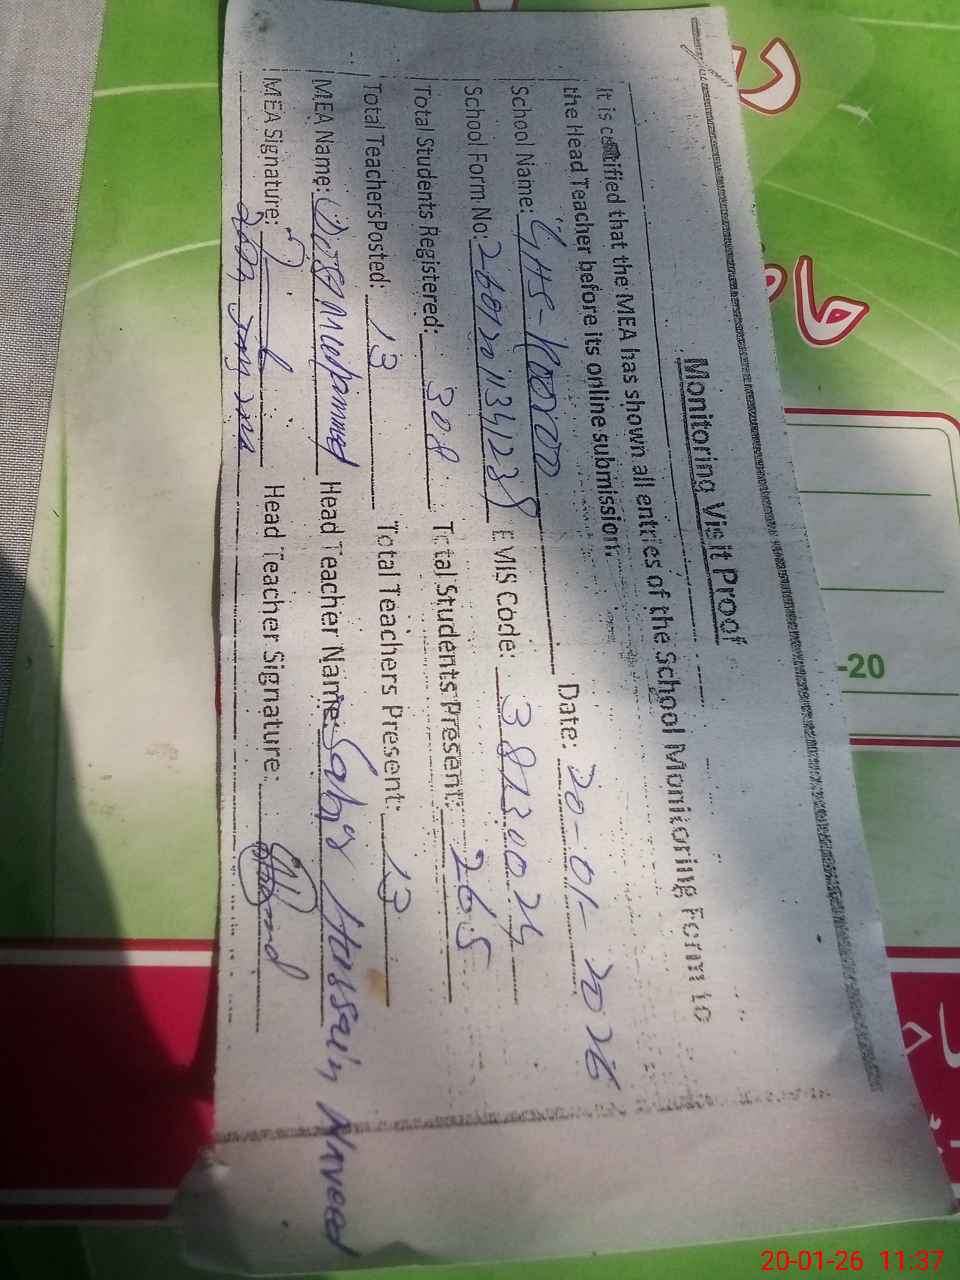 Monitoring Visit Proof
It is certified that the MEA has shown all entries of the School Monitoring Form to
the Head Teacher before its online submission.
School Name: GHS- Date: 20-01-2026
School Form No: EMIS Code:
Total Students Registered: 308 Total Students Present: 265
Total Teachers Posted: 13 Total Teachers Present: 13
MEA Name: Muhammad Head Teacher Name: Sabir Hussain Naveed
MEA Signature: Head Teacher Signature:
-20
د
20-01-26 11:37